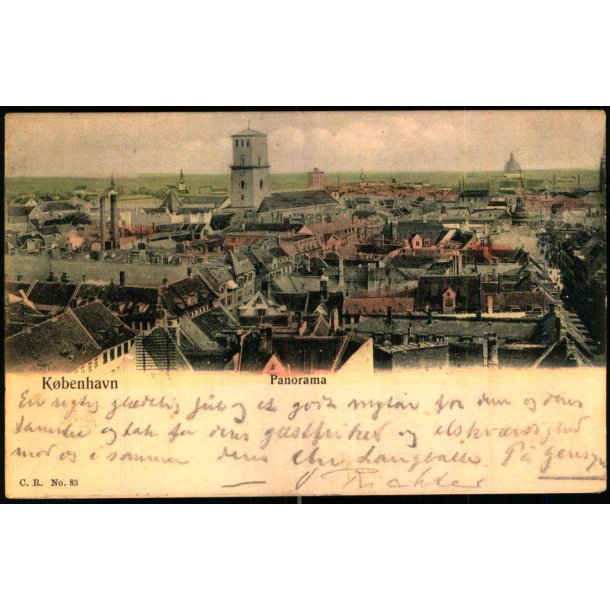 København
Panorama
En rigtig glædelig Jul og et godt nytår for dem og deres
familie og tak for deres gæstfrihed og elskværdighed
mod os i sommer deres Chr. Langballe. På gensyn
Richter
C. R. No. 83